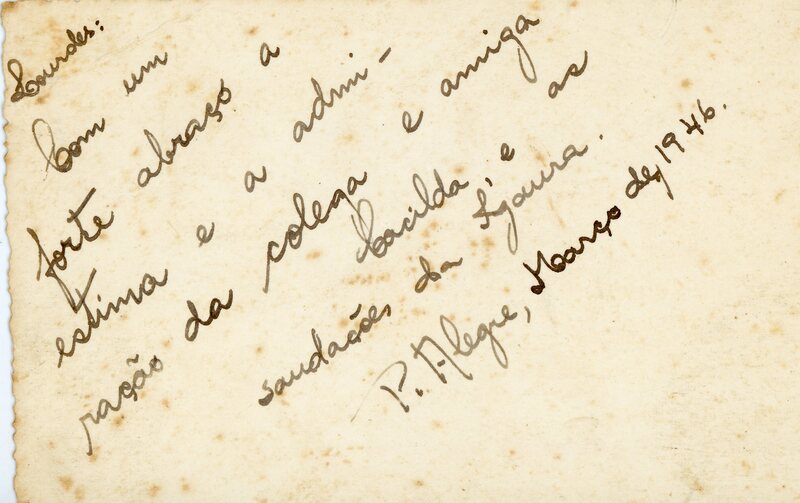 Lourdes:
Com um
forte abraço a
estima e a admi-
ração da colega e amiga
Cacilda, e as
saudações da
P. Alegre, Março de, 1946.